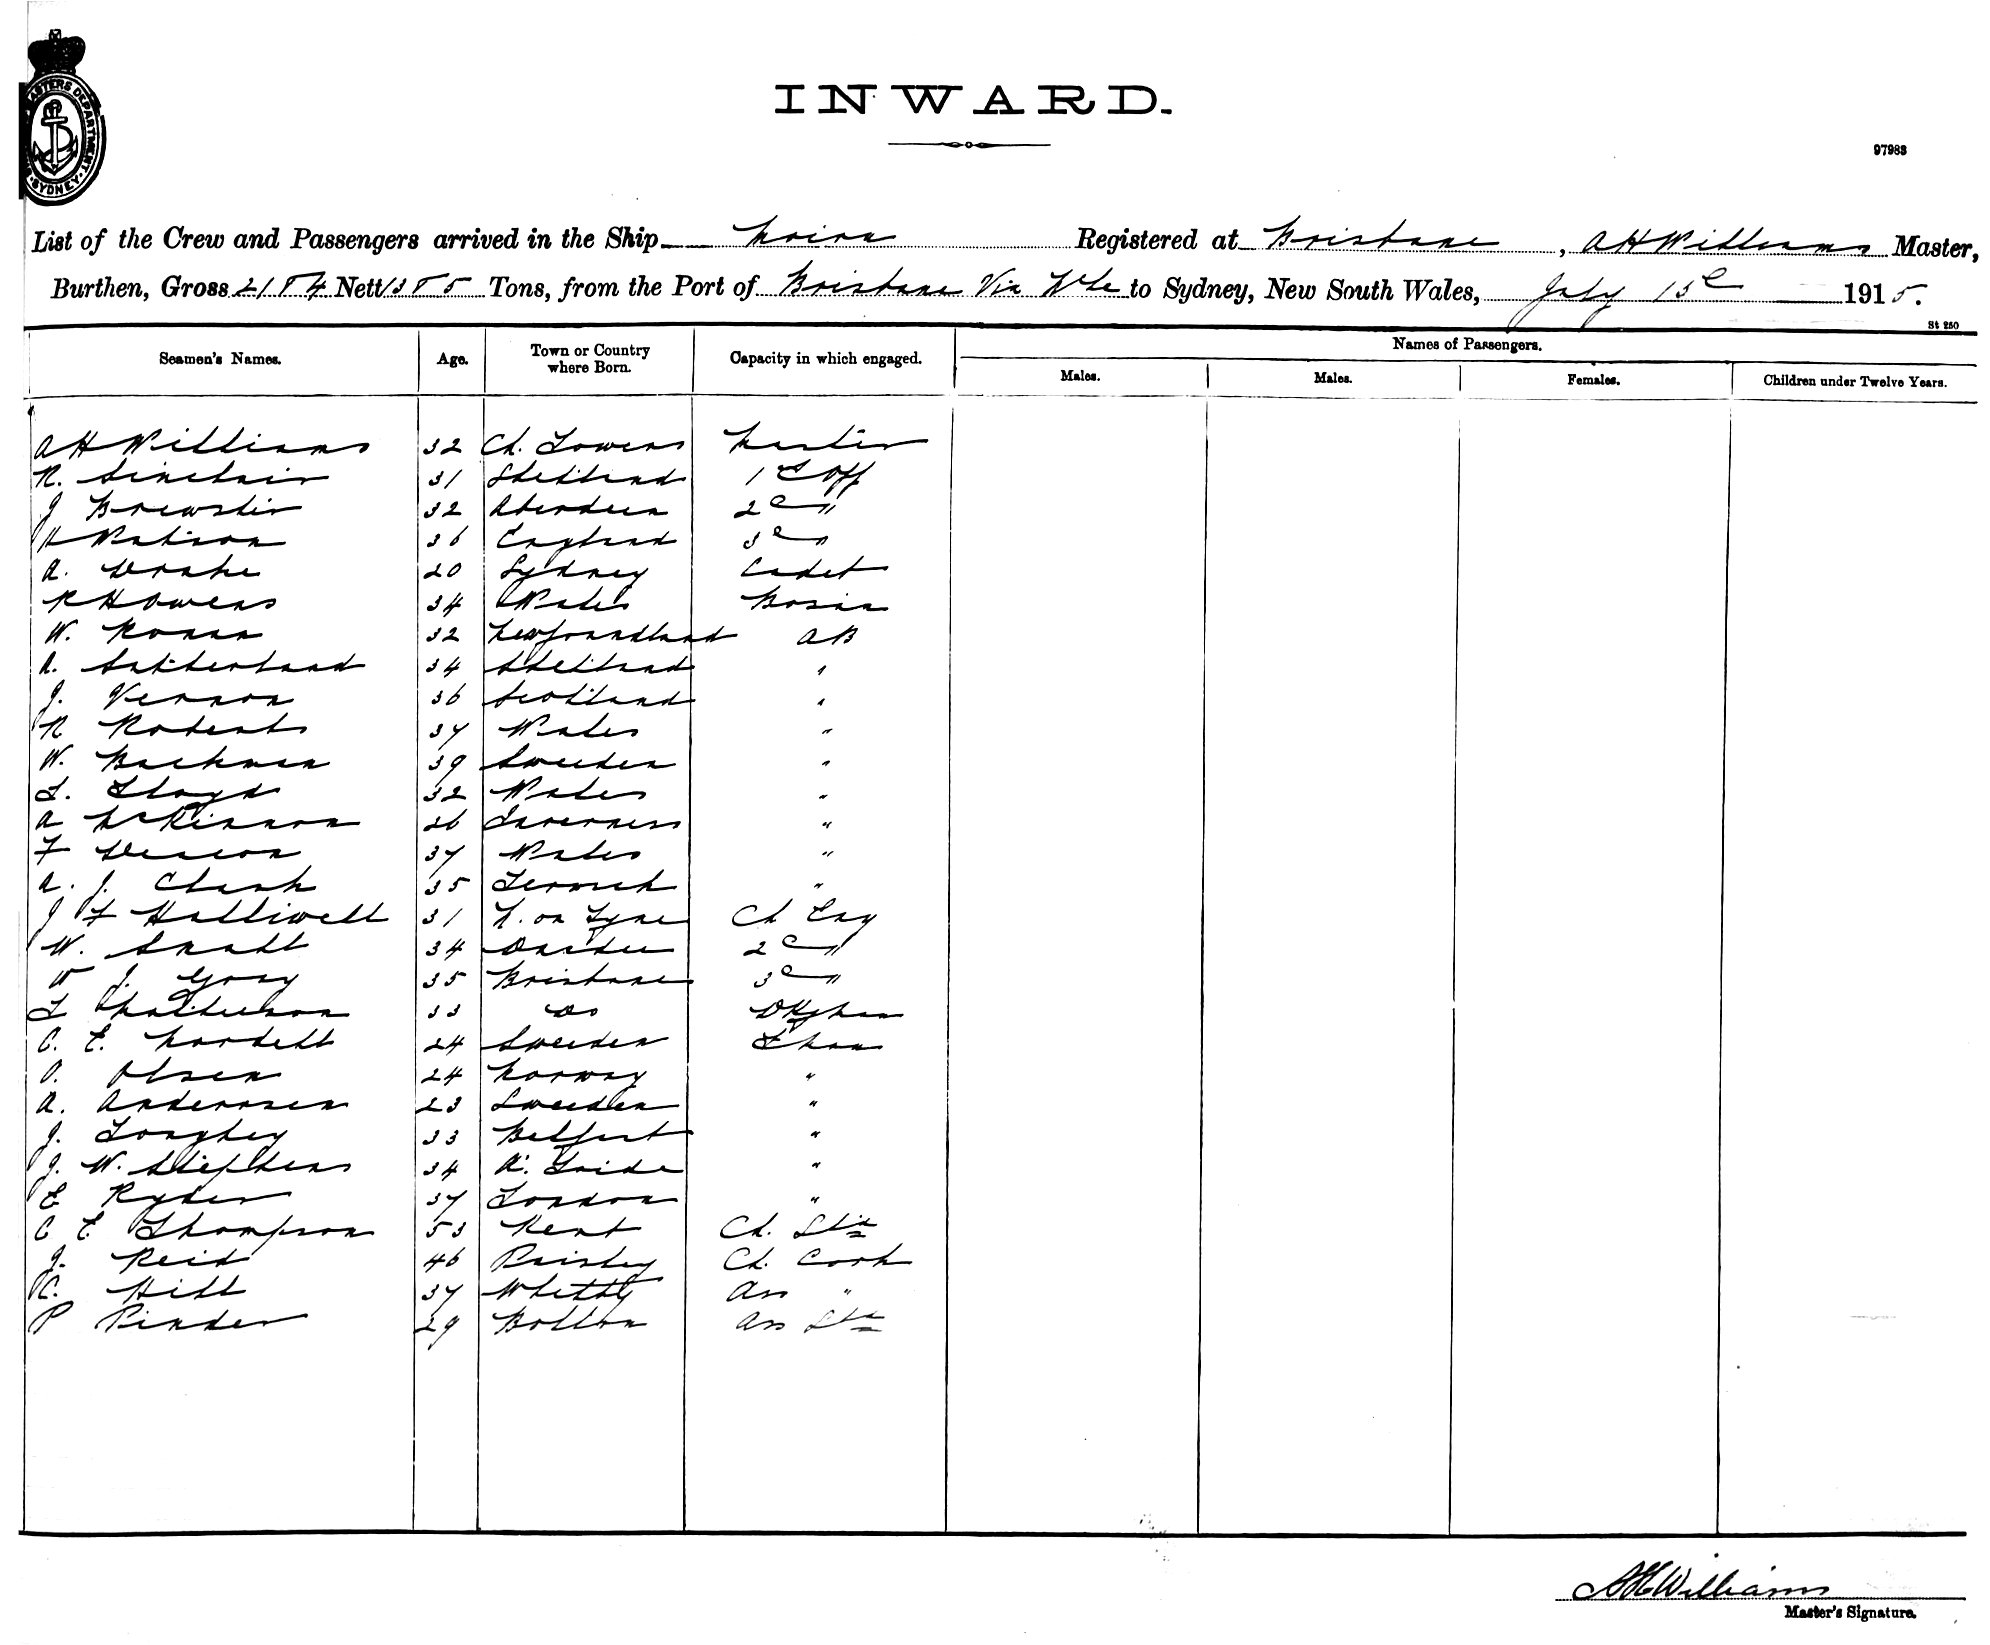 MASTERS DEPARTMENT
SYDNEY
INWARD.
97983
List of the Crew and Passengers arrived in the Ship Moira Registered at Brisbane, A H Williams Master,
Burthen, Gross 2184 Nett 1385 Tons, from the Port of Brisbane Via N'cle to Sydney, New South Wales, July 1915.
St 250
Seamen's Names. Age. Town or Country where Born. Capacity in which engaged. Names of Passengers.
Males. Males. Females. Children under Twelve Years.
A H Williams 32 Ch. Towers Master
R. Sinclair 31 Shetland 1st Off
J Brewster 32 Aberdeen 2d "
H Watson 36 England 3d "
A. Drake 20 Sydney Cadet
R H Owens 34 Wales Bosun
W. 32 Newfoundland AB
A. Sutherland 34 Shetland "
J. Vernon 36 Scotland "
R Roberts 37 Wales "
W. Backman 39 Sweden "
L. Lloyd 32 Wales "
A McKinnon 26 Inverness "
F Deacon 37 Wales "
A. J. Clark 35 Lerwick "
J F Halliwell 31 N. on Tyne Ch Eng
W. Small 34 Dundee 2d "
W J. Gray 35 Brisbane 3d "
T Matheson 33 Do Dkyman
C. E. Nordell 24 Sweden Fman
O. Olsen 24 Norway "
A. Anderssen 23 Sweden "
J. Loughey 33 Belfast "
J. W. Stephens 34 A'laide "
E Ryder 37 London "
C E Thompson 53 Kent Ch. Std
J. Reid 46 Paisley Ch. Cook
C. Hill 37 Whitby Ass "
P Pinder 29 Bolton Ass Std
A H Williams
Master's Signature.